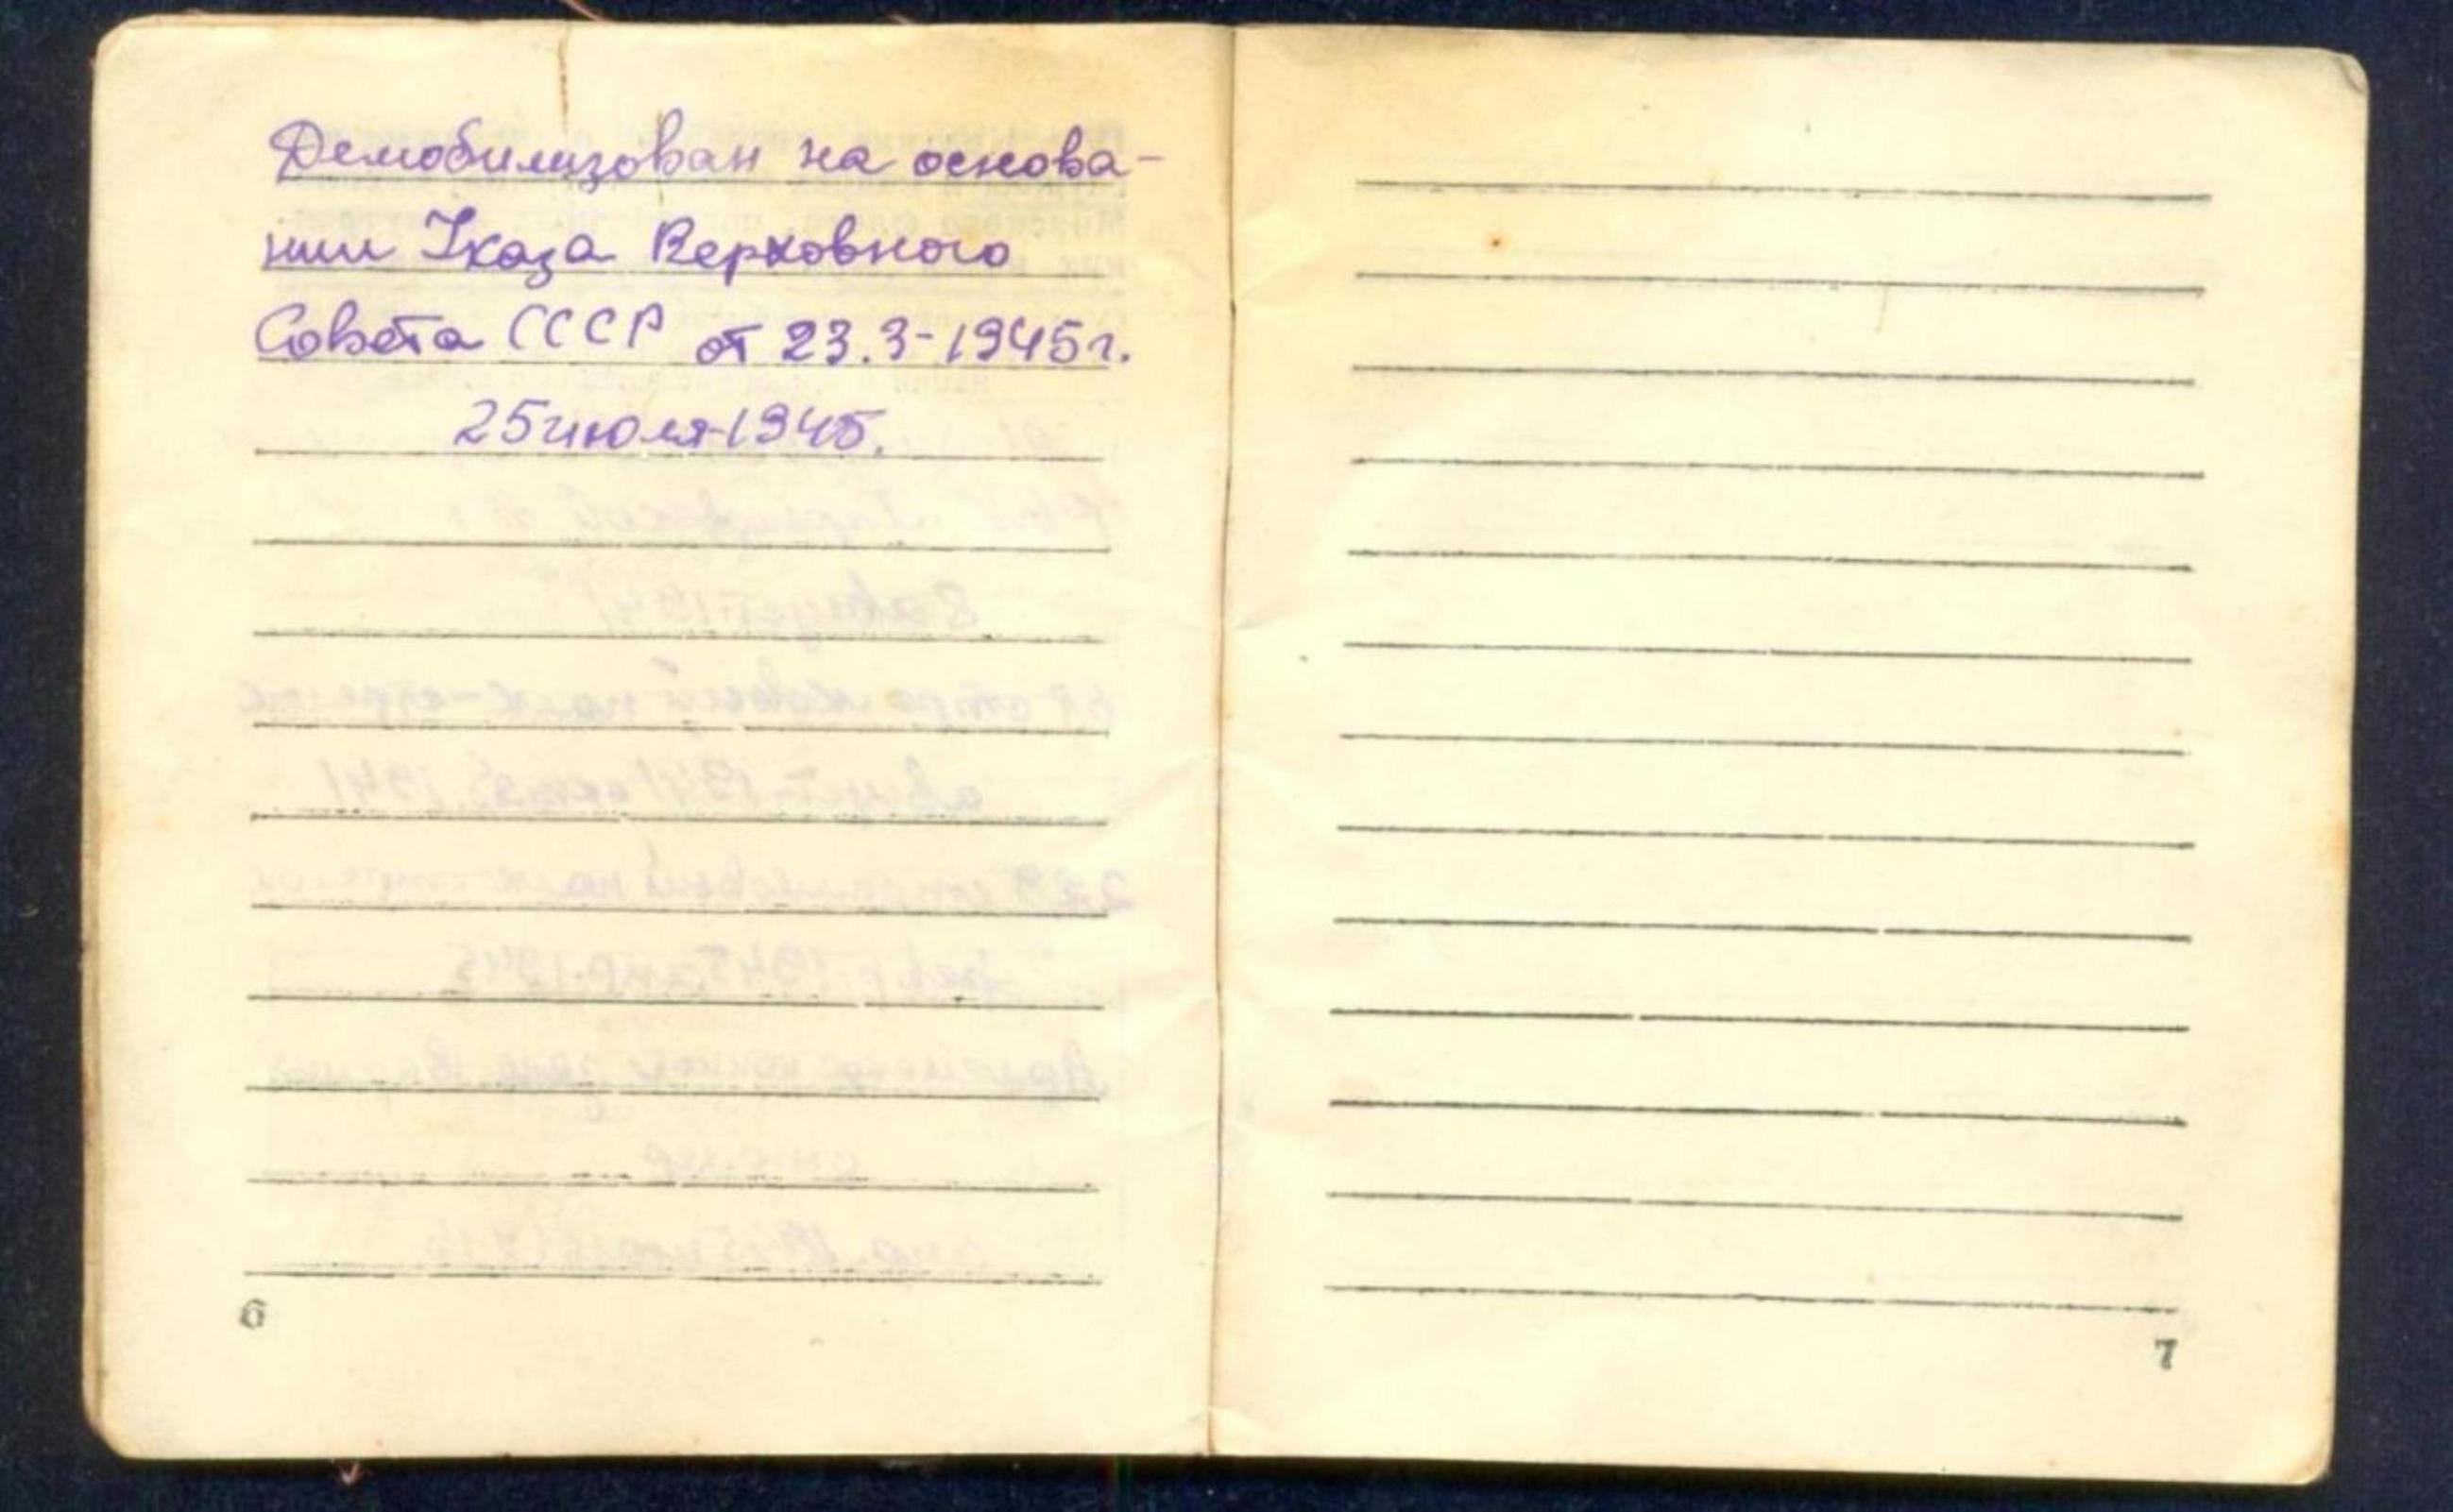 Демобилизован на основа-
нии Указа Верховного
Совета СССР от 23.3-1945г.
25 июля-1945.
6
7